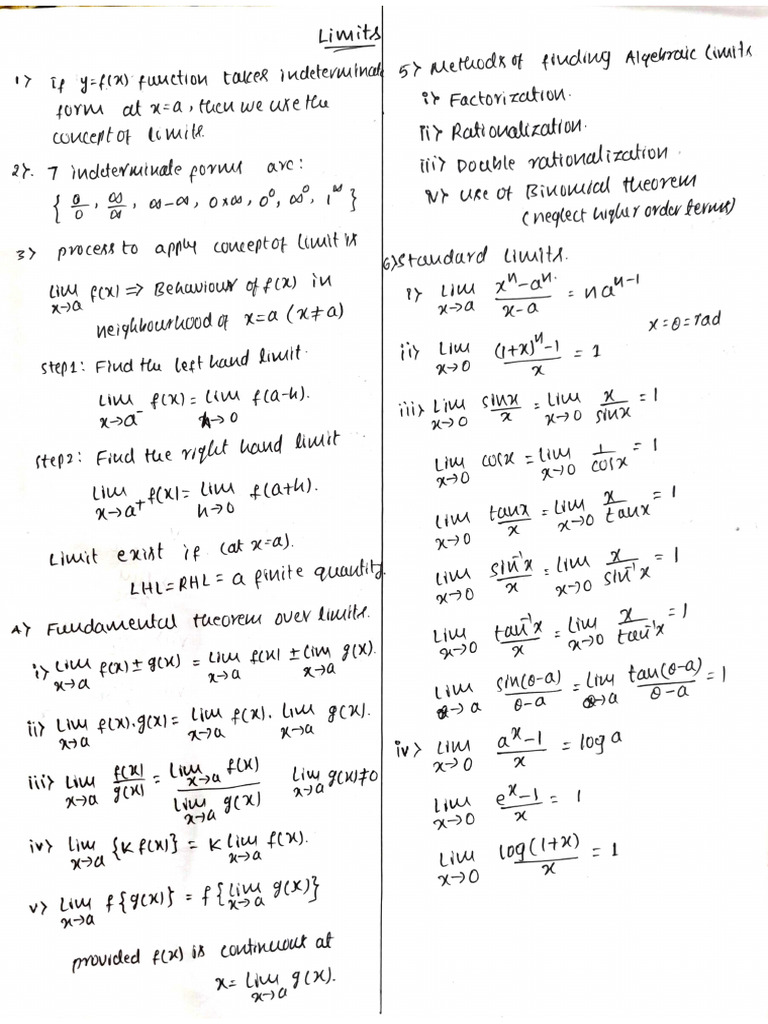 Limits
1) if y=f(x) function takes indeterminate
form at x=a, then we use the
concept of limits.
2). 7 indeterminate forms are:
{ 0/0, ∞/∞, ∞-∞, 0×∞, 0⁰, ∞⁰, 1^∞ }
3) process to apply concept of limit is
lim x→a f(x) ⇒ Behaviour of f(x) in
neighbourhood of x=a (x≠a)
step1: Find the left hand limit.
Lim x→a⁻ f(x) = lim h→0 f(a-h).
step2: Find the right hand limit
Lim x→a⁺ f(x) = Lim h→0 f(a+h).
Limit exist if (at x=a).
LHL=RHL= a finite quantity.
4) Fundamental theorem over limits.
i) Lim x→a f(x) ± g(x) = Lim x→a f(x) ± Lim x→a g(x).
ii) Lim x→a f(x).g(x) = Lim x→a f(x). Lim x→a g(x).
iii) Lim x→a f(x)/g(x) = Lim x→a f(x) / Lim x→a g(x) Lim x→a g(x)≠0
iv) Lim x→a {K f(x)} = K Lim x→a f(x).
v) Lim x→a f{g(x)} = f{Lim x→a g(x)}
provided f(x) is continuout at
x = Lim x→a g(x).
5) Methods of finding Algebraic Limits
i) Factorization.
ii) Rationalization.
iii) Double rationalization.
iv) use of Binomial theorem
(neglect higher order terms)
6) Standard Limits.
i) Lim x→a (xⁿ-aⁿ)/(x-a) = n aⁿ⁻¹
x=θ=rad
ii) Lim x→0 ((1+x)ⁿ-1)/x = 1
iii) Lim x→0 sinx/x = Lim x→0 x/sinx = 1
Lim x→0 cosx = Lim x→0 1/cosx = 1
Lim x→0 tanx/x = Lim x→0 x/tanx = 1
Lim x→0 sin⁻¹x/x = Lim x→0 x/sin⁻¹x = 1
Lim x→0 tan⁻¹x/x = Lim x→0 x/tan⁻¹x = 1
Lim θ→a sin(θ-a)/(θ-a) = Lim θ→a tan(θ-a)/(θ-a) = 1
iv) Lim x→0 (aˣ-1)/x = log a
Lim x→0 (eˣ-1)/x = 1
Lim x→0 log(1+x)/x = 1